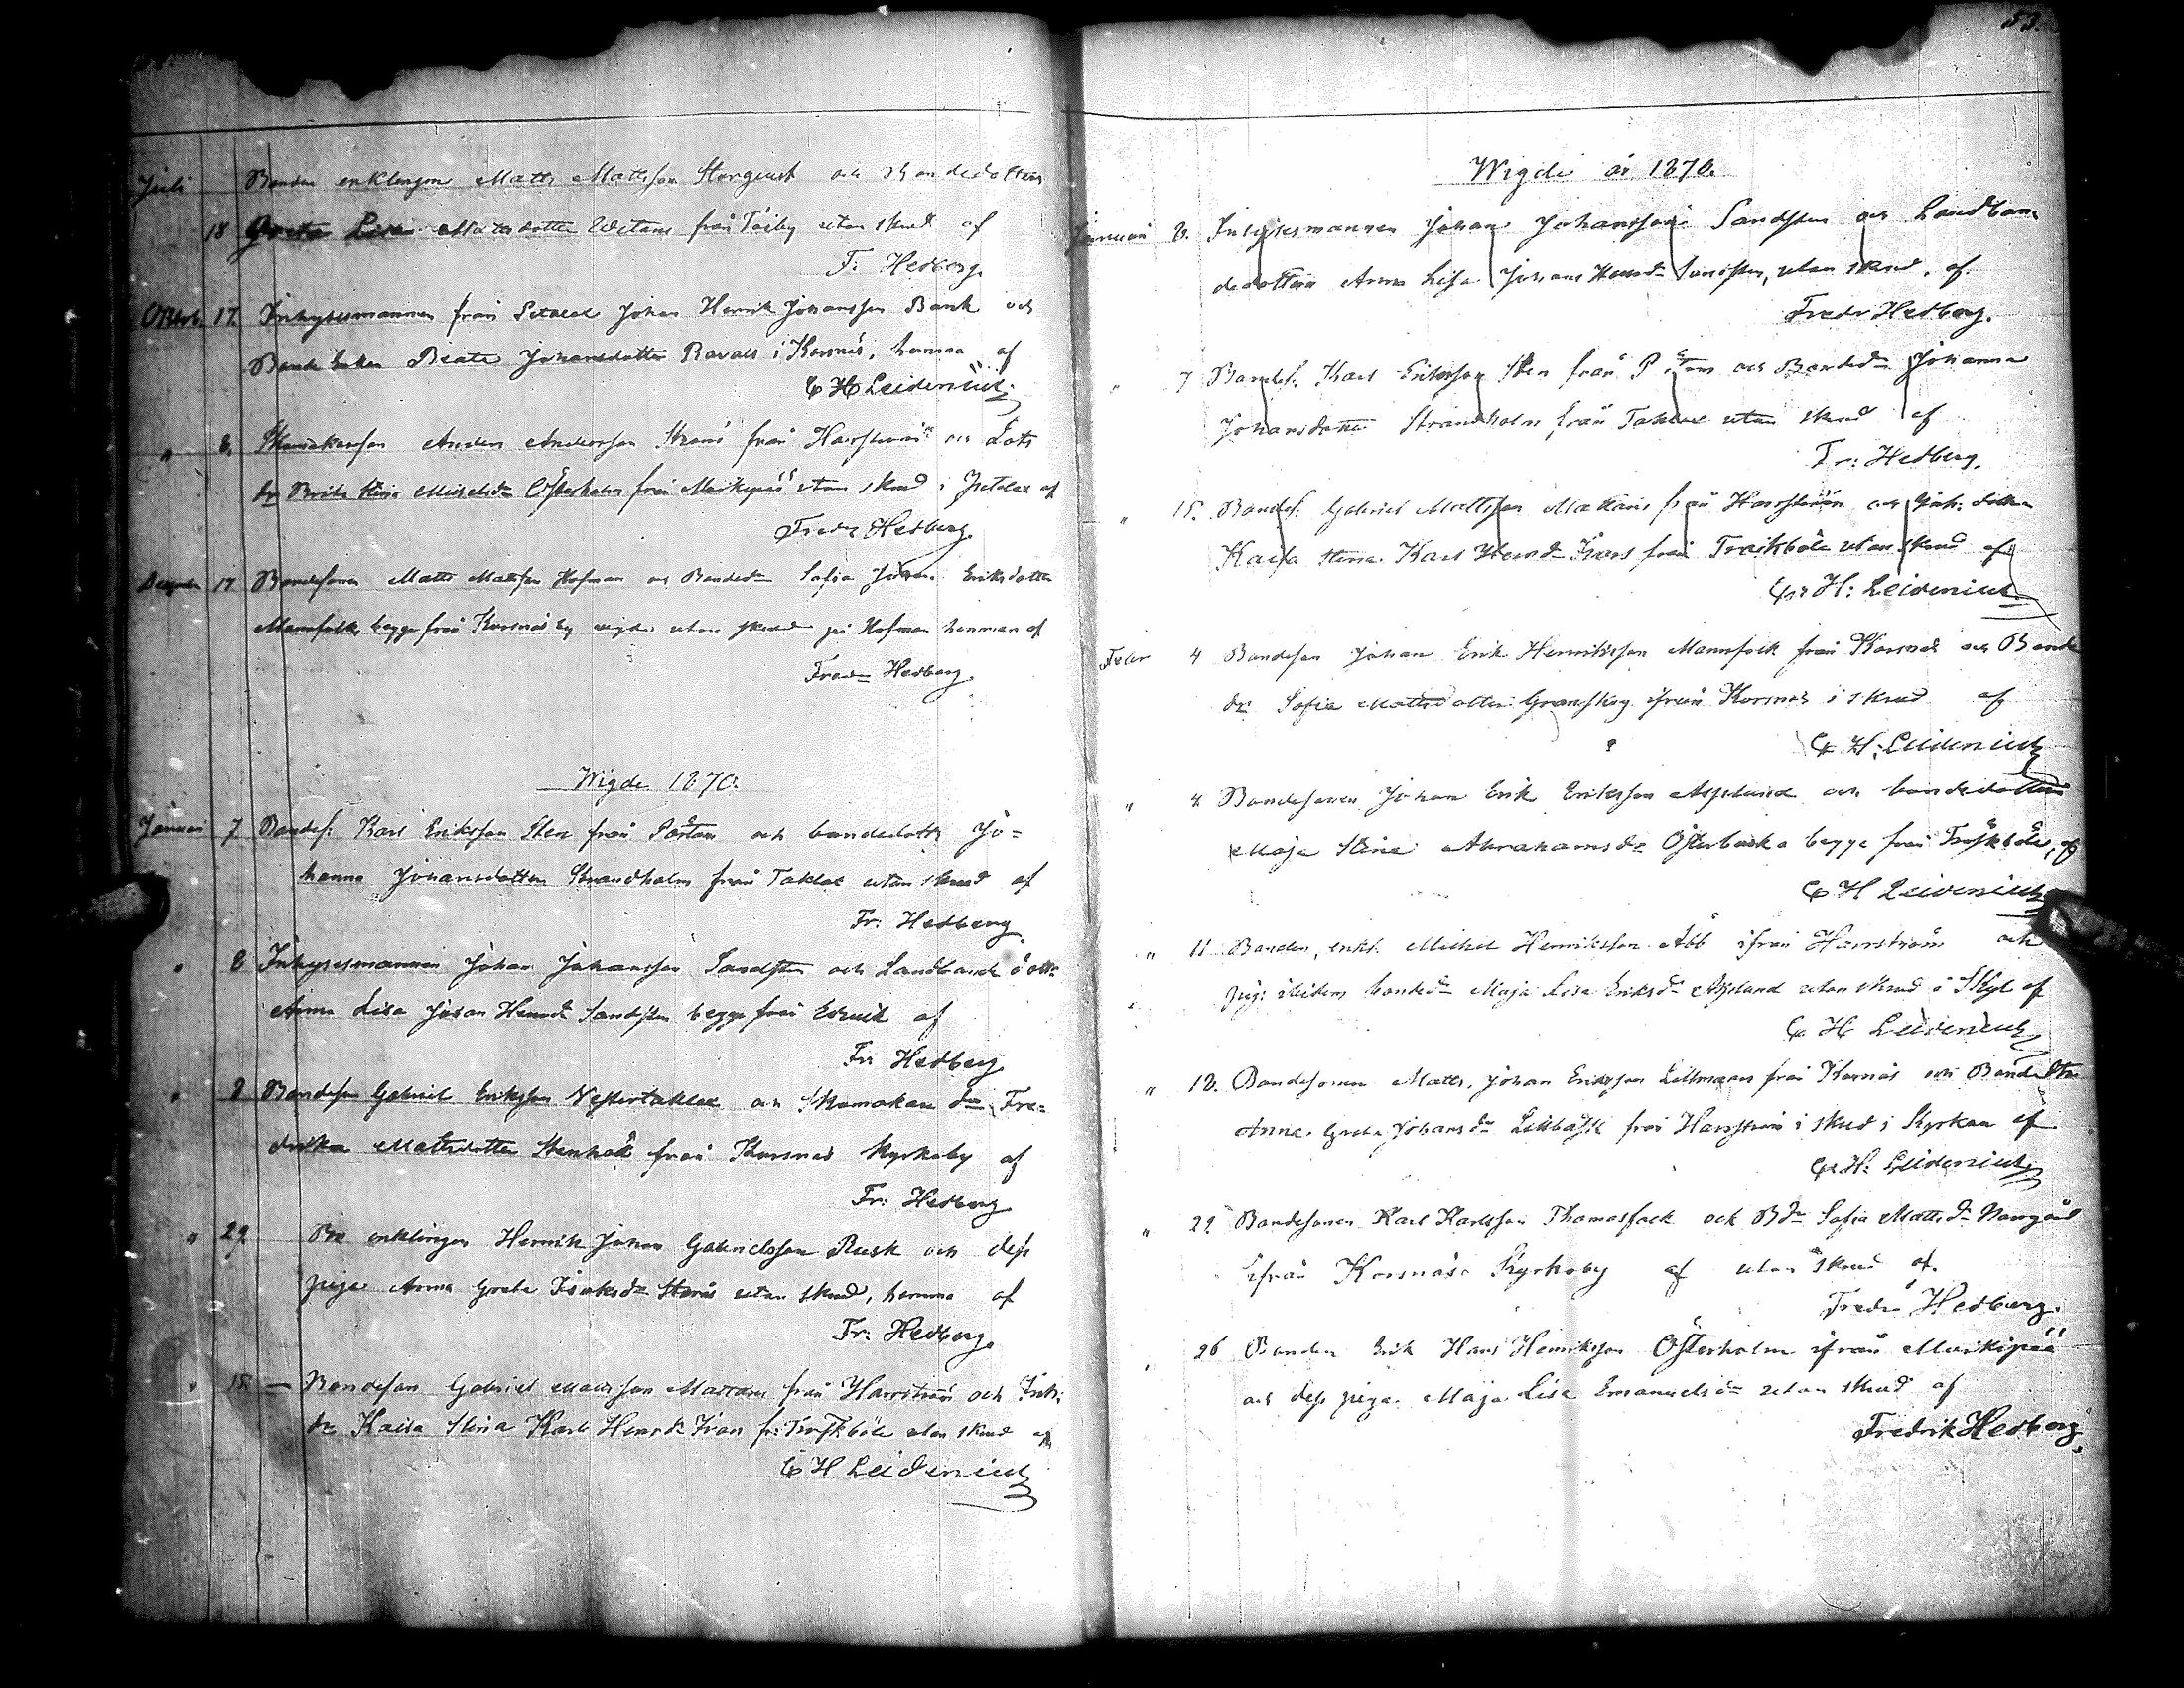 Juli Bonden enklingen Matts Mattsson Storgeust och Bondedottren
18 Greta Lisa Matsdotter från Töiby utan skrud af
F: Hedberg.
Oktob. 17. Inhysesmannen från Petalax Johan Henrik Johansson Bank och
Bonde Enkan Beata Johansdotter Ravals i Korsnäs, hemma af
C H Leidenius.
" 8. Skomakarson Anders Andersson Ström från Harrström och Lots
dr Brita Stina Michelsdr Österholm från Morkipää utan skrud i Petalax af
Fredr Hedberg.
December 17 Bondesonen Matts Mattsson Hofman och Bondedr Sofia Johan Eriksdotter
Mannfolk begge från Korsnäs by vigda utan skrud på Hofman hemman af
Fredr Hedberg.
Wigde 1870.
Januari 7 Bondes. Karl Eriksson Sten från Pörtom och bondedottr Jo=
hanna Johansdotter Strandholm från Taklax utan skrud af
Fr: Hedberg.
" 8 Inhysesmannen Johan Johansson Sandsten och Landbonde dottr
Anna Lisa Johan Henrdr Sandsten begge från Edsvik af
Fr Hedberg
" 8 Bondeson Gabriel Eriksson Vestertaklax och Skomakare dr Fre=
drika Mattsdotter Stenhall från Korsnäs Kyrkoby af
Fr: Hedberg
" 29 Bde enklingen Henrik Johan Gabrielsson Rusk och dess
piga Anna Greta Isaksdr Storås utan skrud, hemma af
Fr: Hedberg.
" 15. — Bondeson Gabriel Mattsson Mattans från Harrström och Inh:
dr Kaisa Stina Karl Henrdr Ivars fr: Träskböle utan skrud af
C H Leidenius
53.
Wigde år 1870.
Januari 8. Inhysesmannen Johan Johansson Sandsten och Landbon-
dedottren Anna Lisa Johans Henrdr Sandsten, utan skrud, af
Fredr Hedberg.
" 7 Bondes. Karl Eriksson Sten från Pörtom och Bondedr Johanna
Johansdotter Strandholm från Taklax utan skrud af
Fr: Hedberg.
" 15. Bondes. Gabriel Mattsson Mattans från Harrström och Inh: dotter
Kaisa Stina Karl Henrdr Ivars från Träskböle utan skrud af
C H: Leidenius
Febr 4 Bondeson Johan Erik Henriksson Mannfolk från Korsnäs och Bonde
dr Sofia Mattsdotter Granskog ifrån Korsnäs i skrud af
C H: Leidenius
" 4. Bondesonen Johan Erik Eriksson Asplund och bondedottren
Maja Stina Abrahamsdr Österbacka begge från Träskböle, af
C H Leidenius
" 11 Bonden, enkl. Michel Henriksson Abb ifrån Harrström och
pig: bondedr Maja Lisa Eriksdr Asplund utan skrud i Skyl af
C H Leidenius
" 18. Bondesonen Matts Johan Eriksson Lillmans från Korsnäs och Bonde dtr
Anna Greta Johansdr Lillbåsk från Harrström i skrud i Kyrkan af
C H: Leidenius
" 22 Bondesonen Karl Karlsson Thomasfolk och Bdr Sofia Mattsdr Norrgård
ifrån Korsnäs Kyrkoby af utan skrud af.
Fredr Hedberg.
" 26 Bonden Erik Hans Henriksson Österholm ifrån Morkipää
och dess piga Maja Lisa Emanuelsdr utan skrud af
Fredrik Hedberg.